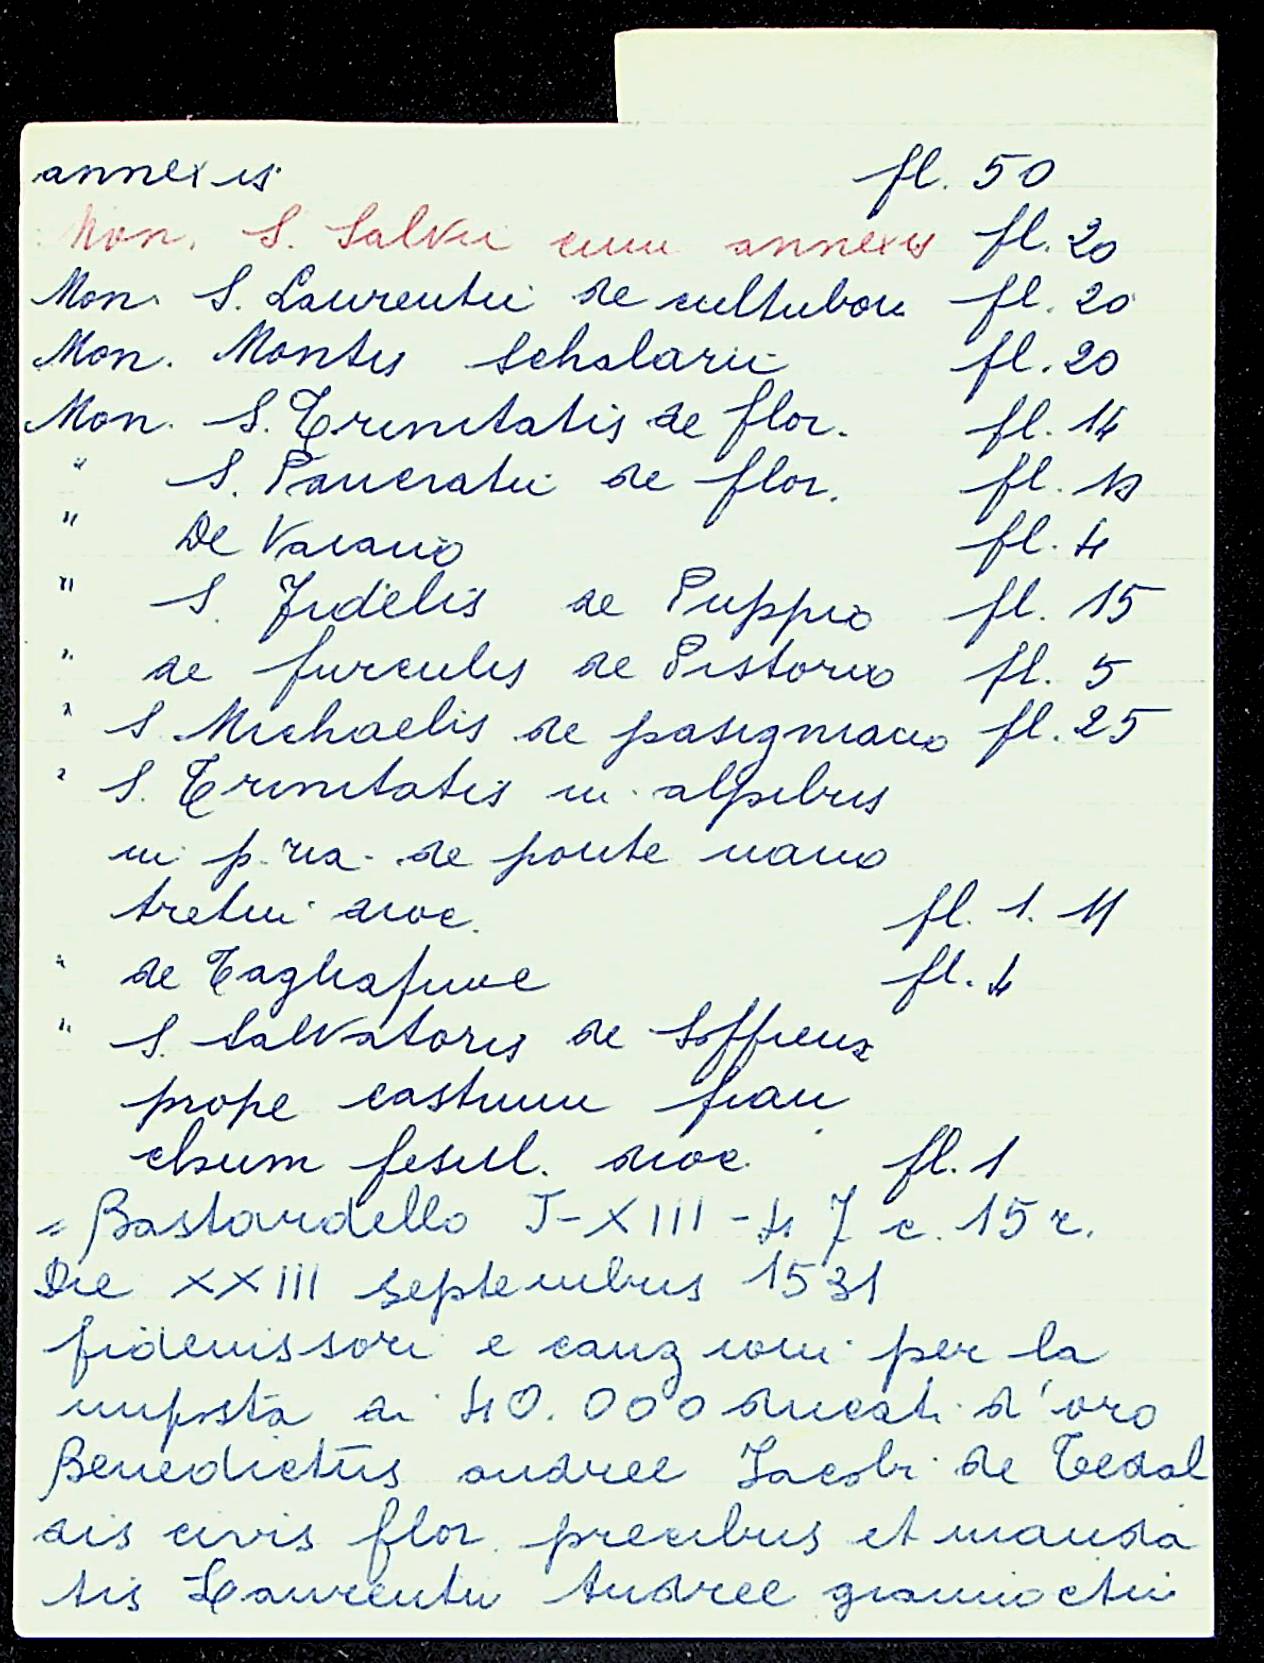 annexis fl. 50
Mon. S. Salvii cum annexis fl. 20
Mon. S. Laurentii de cultubon fl. 20
Mon. Montis Schalarii fl. 20
Mon. S. Trinitatis de flor. fl. 14
" S. Pancratii de flor. fl.
" De Vaiano fl. 4
" S. Fidelis de Puppio fl. 15
" de furculis de Pistorio fl. 5
" S. Michaelis de pasigniano fl. 25
" S. Trinitatis in alpibus
in p. de ponte nano
aretin dioc. fl. 1. 11
" de Tagliafune fl. 4
" S. Salvatoris de Soffiena
prope castrum fran
chum fesul. dioc. fl. 1
= Bastardello I-XIII-47 c. 15 r.
Die XXIII septembris 1531
fideiussori e cauzioni per la
imposta di 40.000 ducati d'oro
Benedictus andree Jacobi de Tedal
dis civis flor. precibus et manda
tis Laurentii Andree